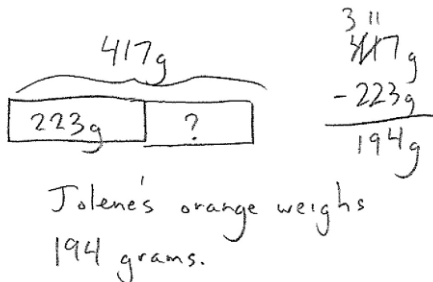 417g
223g ?
3 11
417g
-223g
194g
Jolene's orange weighs
194 grams.